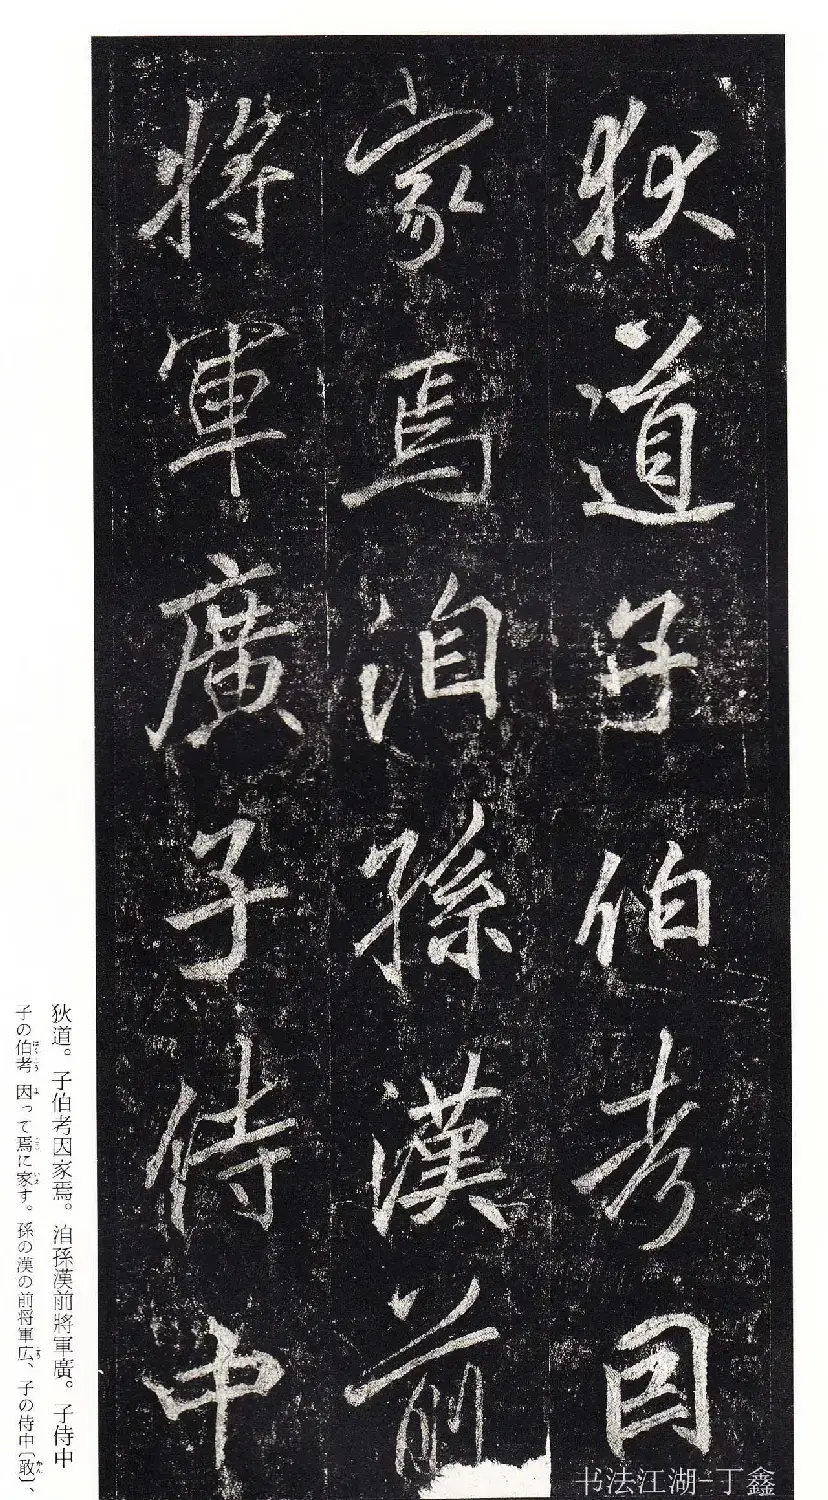 狄道子伯考因
家焉洎孫漢前
將軍廣子侍中
狄道。子伯考因家焉。洎孫漢前將軍廣。子侍中
子の伯考、因って焉に家す。孫の漢の前将軍広、子の侍中〔敢〕、
书法江湖-丁鑫